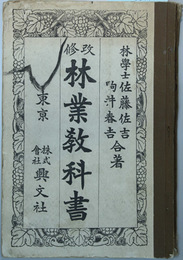 林學士 佐藤佐吉
向井春吉 合著
修改
林業教科書
東京
株式
會社 興文社